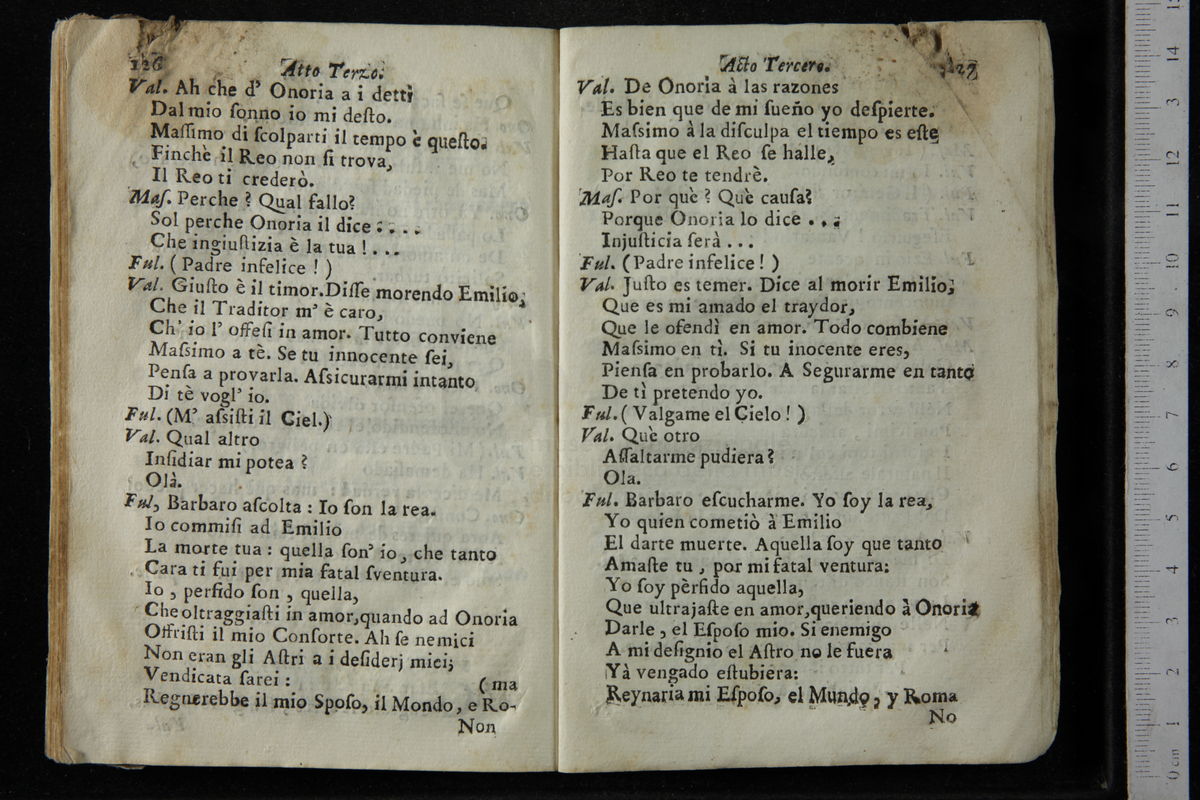 126 Atto Terzo.
Val. Ah che d' Onoria a i detti
Dal mio ſonno io mi deſto.
Maſſimo di ſcolparti il tempo è queſto.
Finchè il Reo non ſi trova,
Il Reo ti crederò.
Maſ. Perche ? Qual fallo?
Sol perche Onoria il dice : . . .
Che ingiuſtizia è la tua ! . . .
Ful. ( Padre infelice ! )
Val. Giuſto è il timor. Diſſe morendo Emilio,
Che il Traditor m' è caro,
Ch' io l' offeſi in amor. Tutto conviene
Maſſimo a tè. Se tu innocente ſei,
Penſa a provarla. Aſsicurarmi intanto
Di tè vogl' io.
Ful. (M' aſsiſti il Ciel.)
Val. Qual altro
Inſidiar mi potea ?
Olà.
Ful, Barbaro aſcolta : Io ſon la rea.
Io commiſi ad Emilio
La morte tua : quella ſon' io, che tanto
Cara ti fui per mia fatal ſventura.
Io , perfido ſon , quella,
Che oltraggiaſti in amor,quando ad Onoria
Offriſti il mio Conſorte. Ah ſe nemici
Non eran gli Aſtri a i deſiderj miei;
Vendicata ſarei : ( ma
Regnerebbe il mio Spoſo, il Mondo, e Ro-
Non
Acto Tercero. 127
Val. De Onoria à las razones
Es bien que de mi ſueño yo deſpierte.
Maſsimo à la diſculpa el tiempo es eſte
Haſta que el Reo ſe halle,
Por Reo te tendrè.
Maſ. Por què ? Què cauſa?
Porque Onoria lo dice . . .
Injuſticia ſerà . . .
Ful. (Padre infelice ! )
Val. Juſto es temer. Dice al morir Emilio;
Que es mi amado el traydor,
Que le ofendì en amor. Todo combiene
Maſsimo en tì. Si tu inocente eres,
Pienſa en probarlo. A Segurarme en tanto
De tì pretendo yo.
Ful. ( Valgame el Cielo ! )
Val. Què otro
Aſſaltarme pudiera?
Ola.
Ful. Barbaro eſcucharme. Yo ſoy la rea,
Yo quien cometiò à Emilio
El darte muerte. Aquella ſoy que tanto
Amaſte tu , por mi fatal ventura:
Yo ſoy pèrfido aquella,
Que ultrajaſte en amor,queriendo à Onoria
Darle , el Eſpoſo mio. Si enemigo
A mi deſignio el Aſtro no le fuera
Yà vengado eſtubiera:
Reynaria mi Eſpoſo, el Mundo, y Roma
No
14
13
12
11
10
9
8
7
6
5
4
3
2
1
0 cm
3
2
1